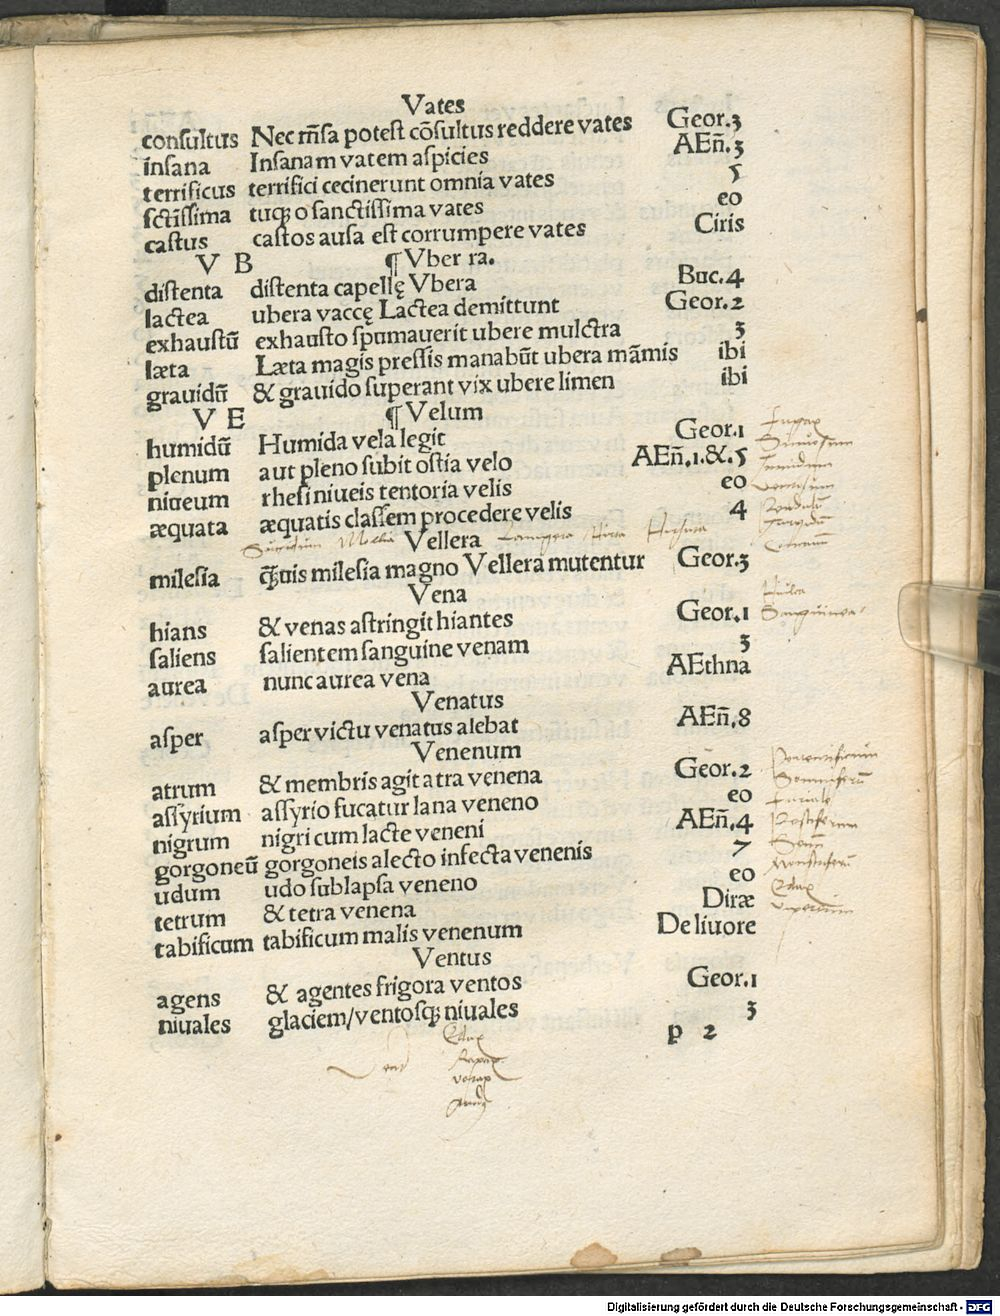 Vates
consultus Nec mẽsa potest cõsultus reddere vates Geor.3
insana Insanam vatem aspicies AEñ.3
terrificus terrifici cecinerunt omnia vates 5
sctissima tuq; o sanctissima vates eo
castus castos ausa est corrumpere vates Ciris
V B ¶ Vber ra.
distenta distenta capellę Vbera Buc.4
lactea ubera vaccę Lactea demittunt Geor.2
exhaustũ exhausto spumauerit ubere mulctra 3
læta Læta magis pressis manabũt ubera mãmis ibi
grauidũ & grauido superant vix ubere limen ibi
V E ¶ Velum
humidũ Humida vela legit Geor.1
plenum aut pleno subit ostia velo AEñ.1.&.5
niueum rhesi niueis tentoria velis eo
æquata æquatis classem procedere velis 4
Vellera
Mollia Lanigera Hirta Hirsuta
milesia q̃uis milesia magno Vellera mutentur Geor.3
Vena
hians & venas astringit hiantes Geor.1
saliens salientem sanguine venam 3
aurea nunc aurea vena AEthna
Venatus
asper asper victu venatus alebat AEñ.8
Venenum
atrum & membris agit atra venena Geor.2
assyrium assyrio fucatur lana veneno eo
nigrum nigri cum lacte veneni AEñ.4
gorgoneũ gorgoneis alecto infecta venenis 7
udum udo sublapsa veneno eo
tetrum & tetra venena Diræ
tabificum tabificum malis venenum De liuore
Ventus
agens & agentes frigora ventos Geor.1
niuales glaciem/ventosq; niuales 3
p 2
Sinuosum
Tumidum
Pendulũ
Turgidũ
Sanguinea
Somniferũ
Furiale
Pestiferum
Edax
Vipereum
Edax
Rapax
Digitalisierung gefördert durch die Deutsche Forschungsgemeinschaft - DFG